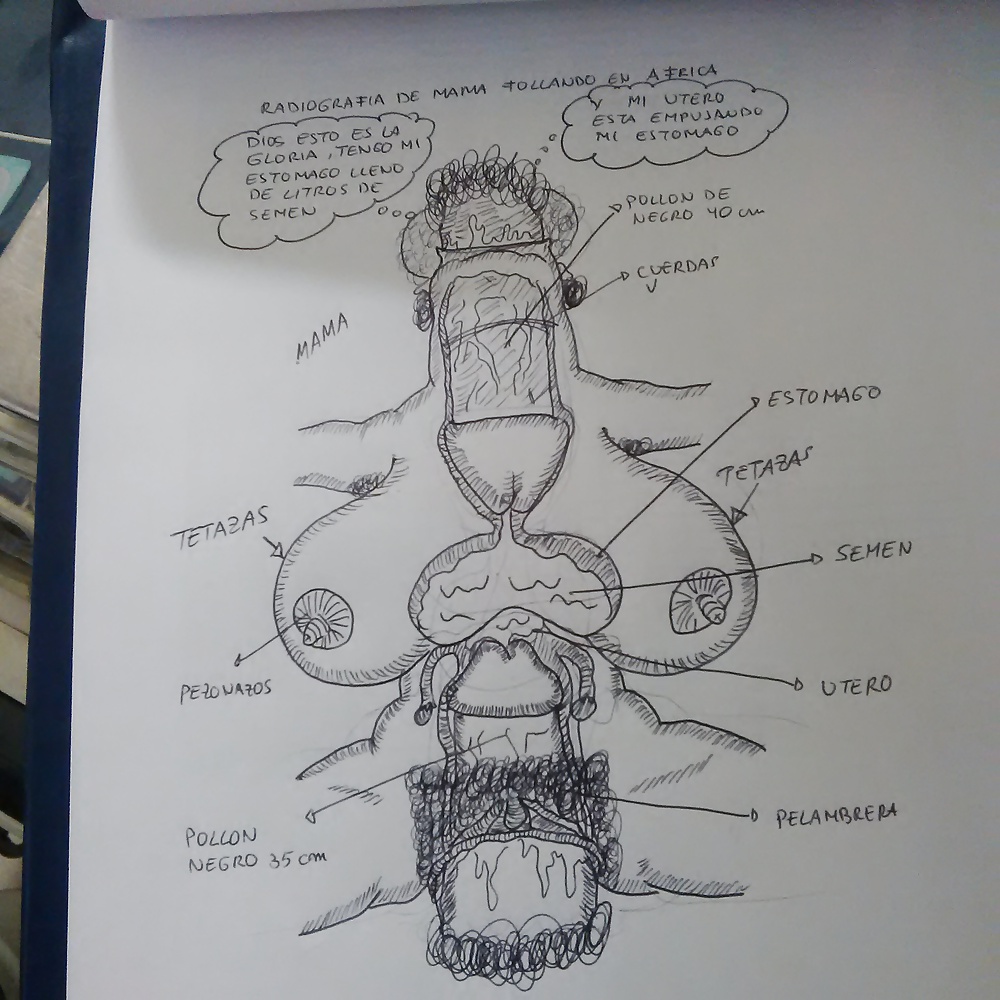 RADIOGRAFIA DE MAMA FOLLANDO EN AFRICA
DIOS ESTO ES LA
GLORIA, TENGO MI
ESTOMAGO LLENO
DE LITROS DE
SEMEN
Y MI UTERO
ESTA EMPUJANDO
MI ESTOMAGO
POLLON DE
NEGRO 40 cm
CUERDAS
MAMA
ESTOMAGO
TETAZAS
TETAZAS
SEMEN
PEZONAZOS
UTERO
POLLON
NEGRO 35 cm
PELAMBRERA